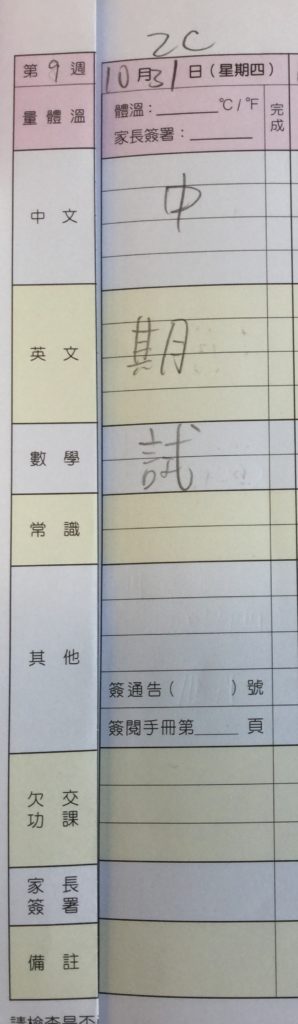 2C
第9週 10月31日(星期四)
量體溫 體溫：______°C/°F 完成
家長簽署：______
中文 中
英文 期
數學 試
常識
其他
簽通告( )號
簽閱手冊第____頁
欠交功課
家長簽署
備註